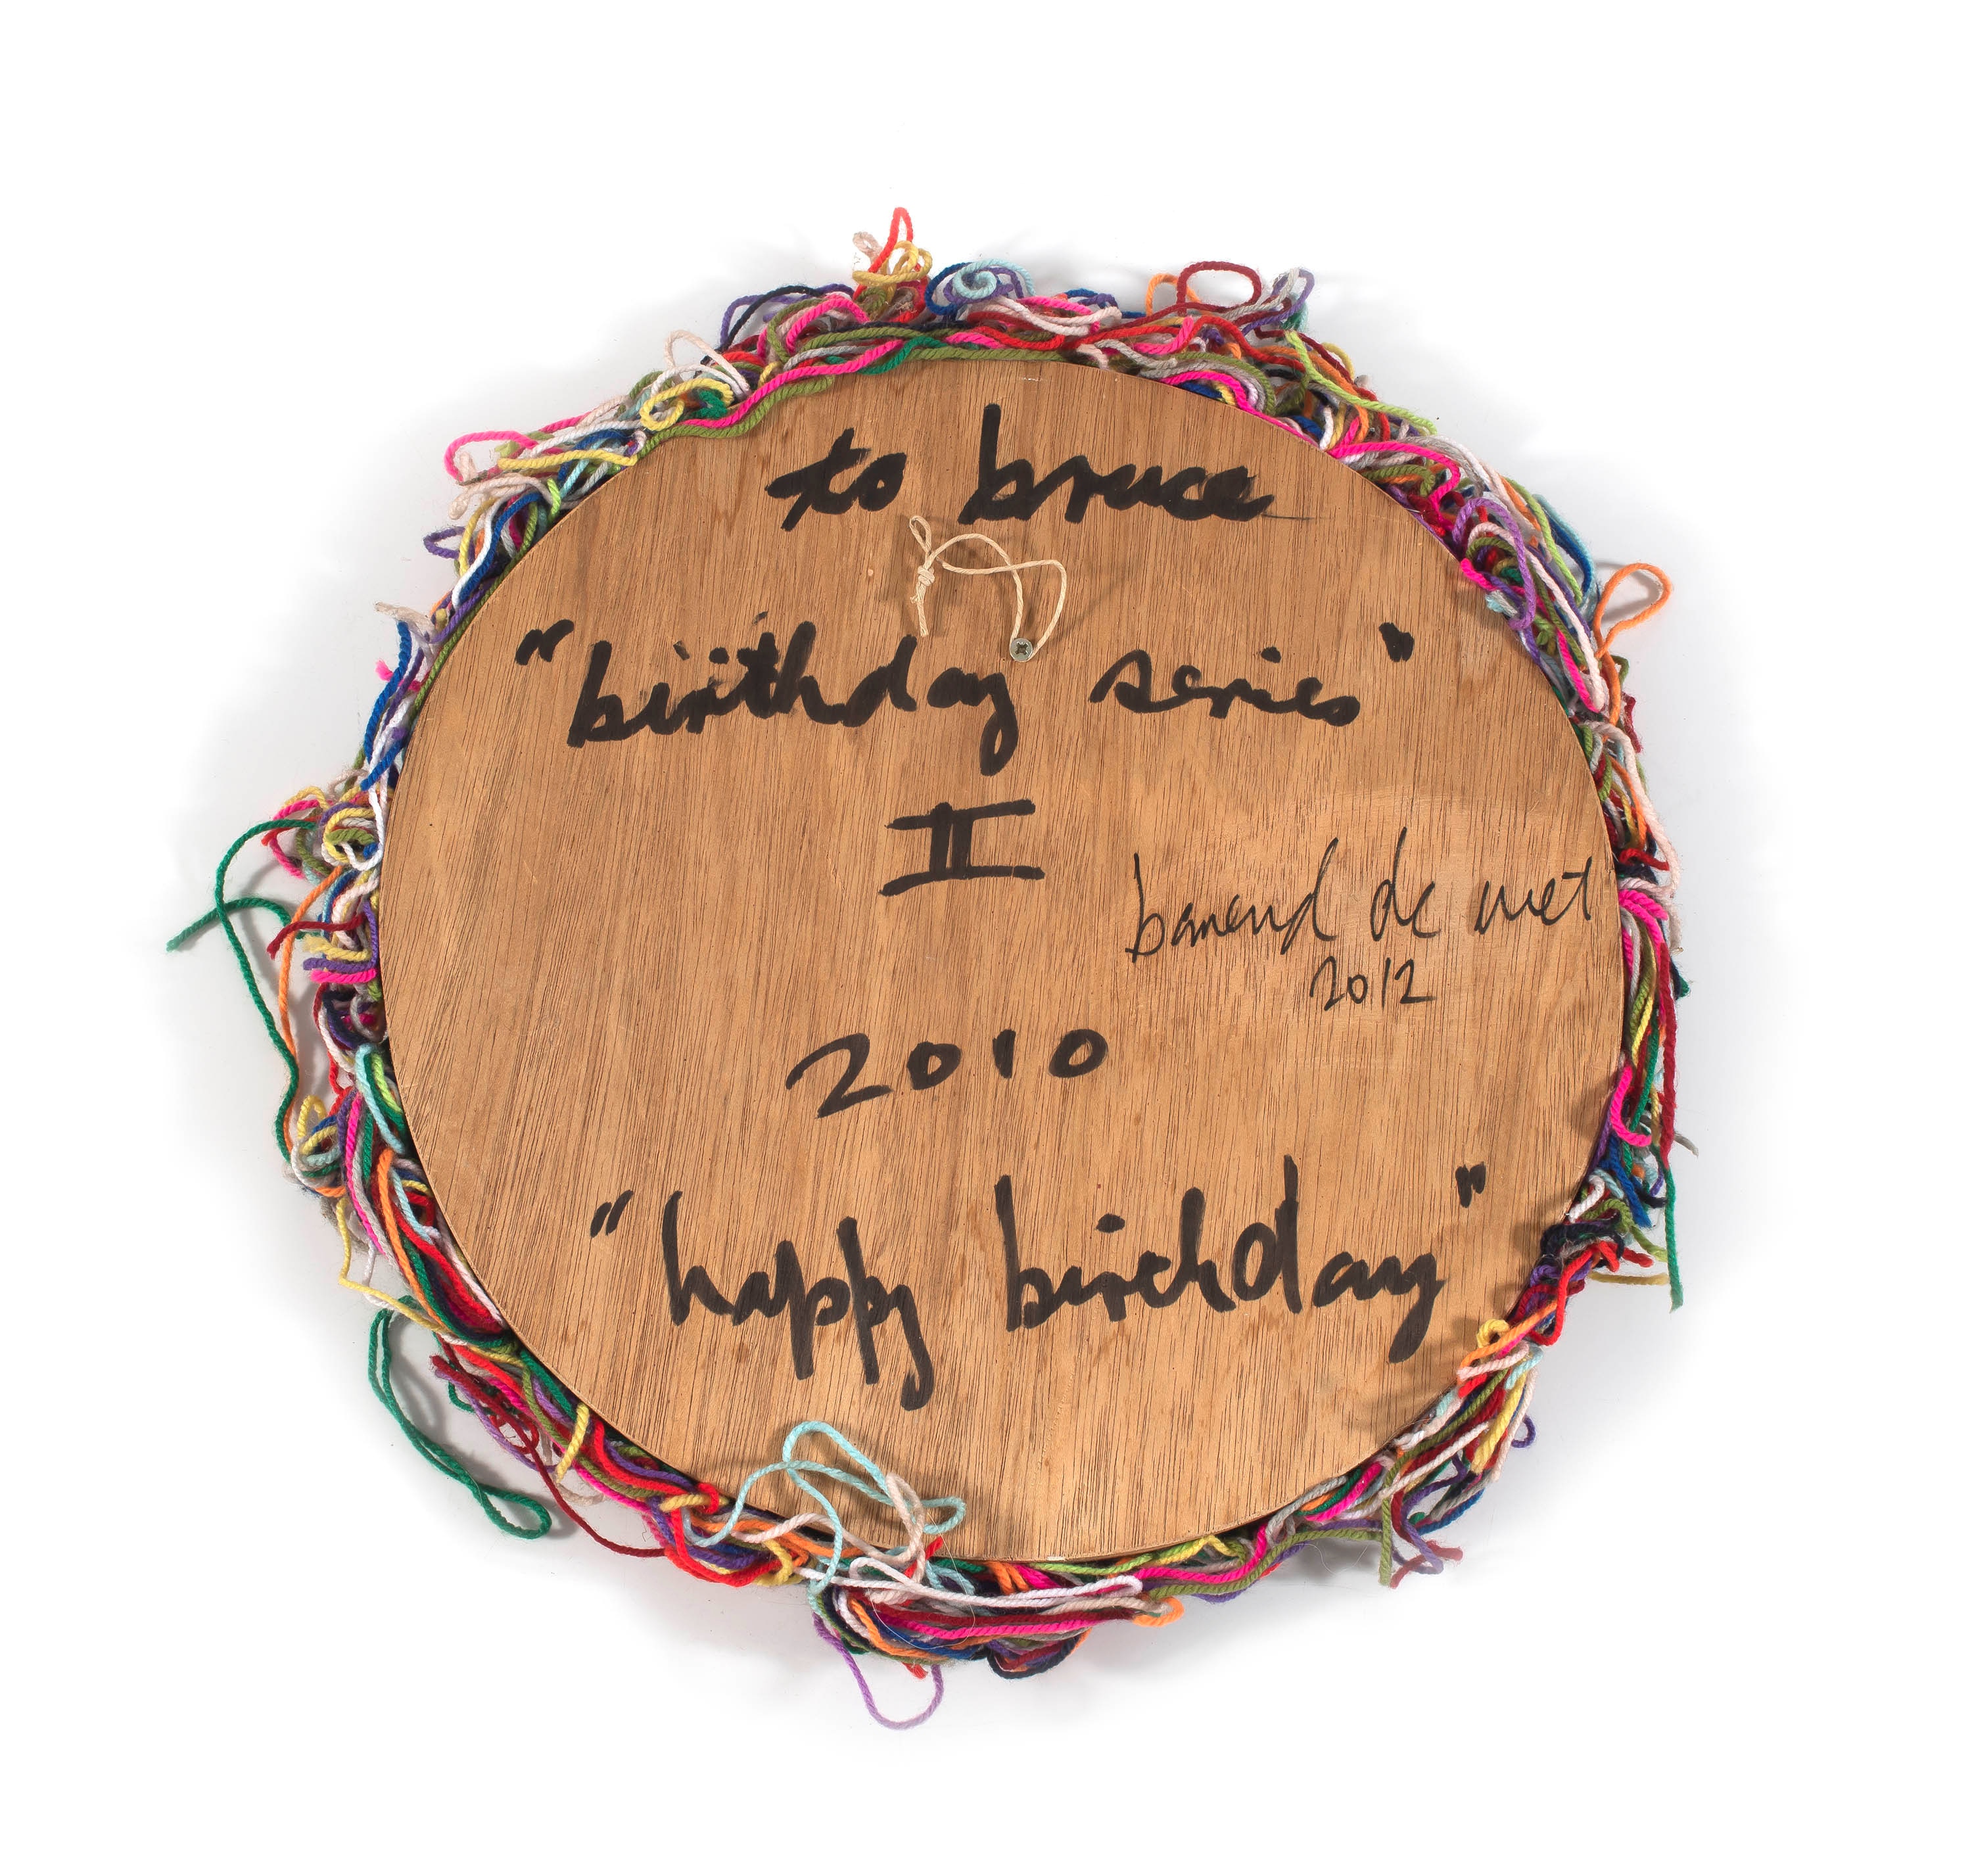 to bruce
"birthday series"
II
barend de wet
2012
2010
"happy birthday"